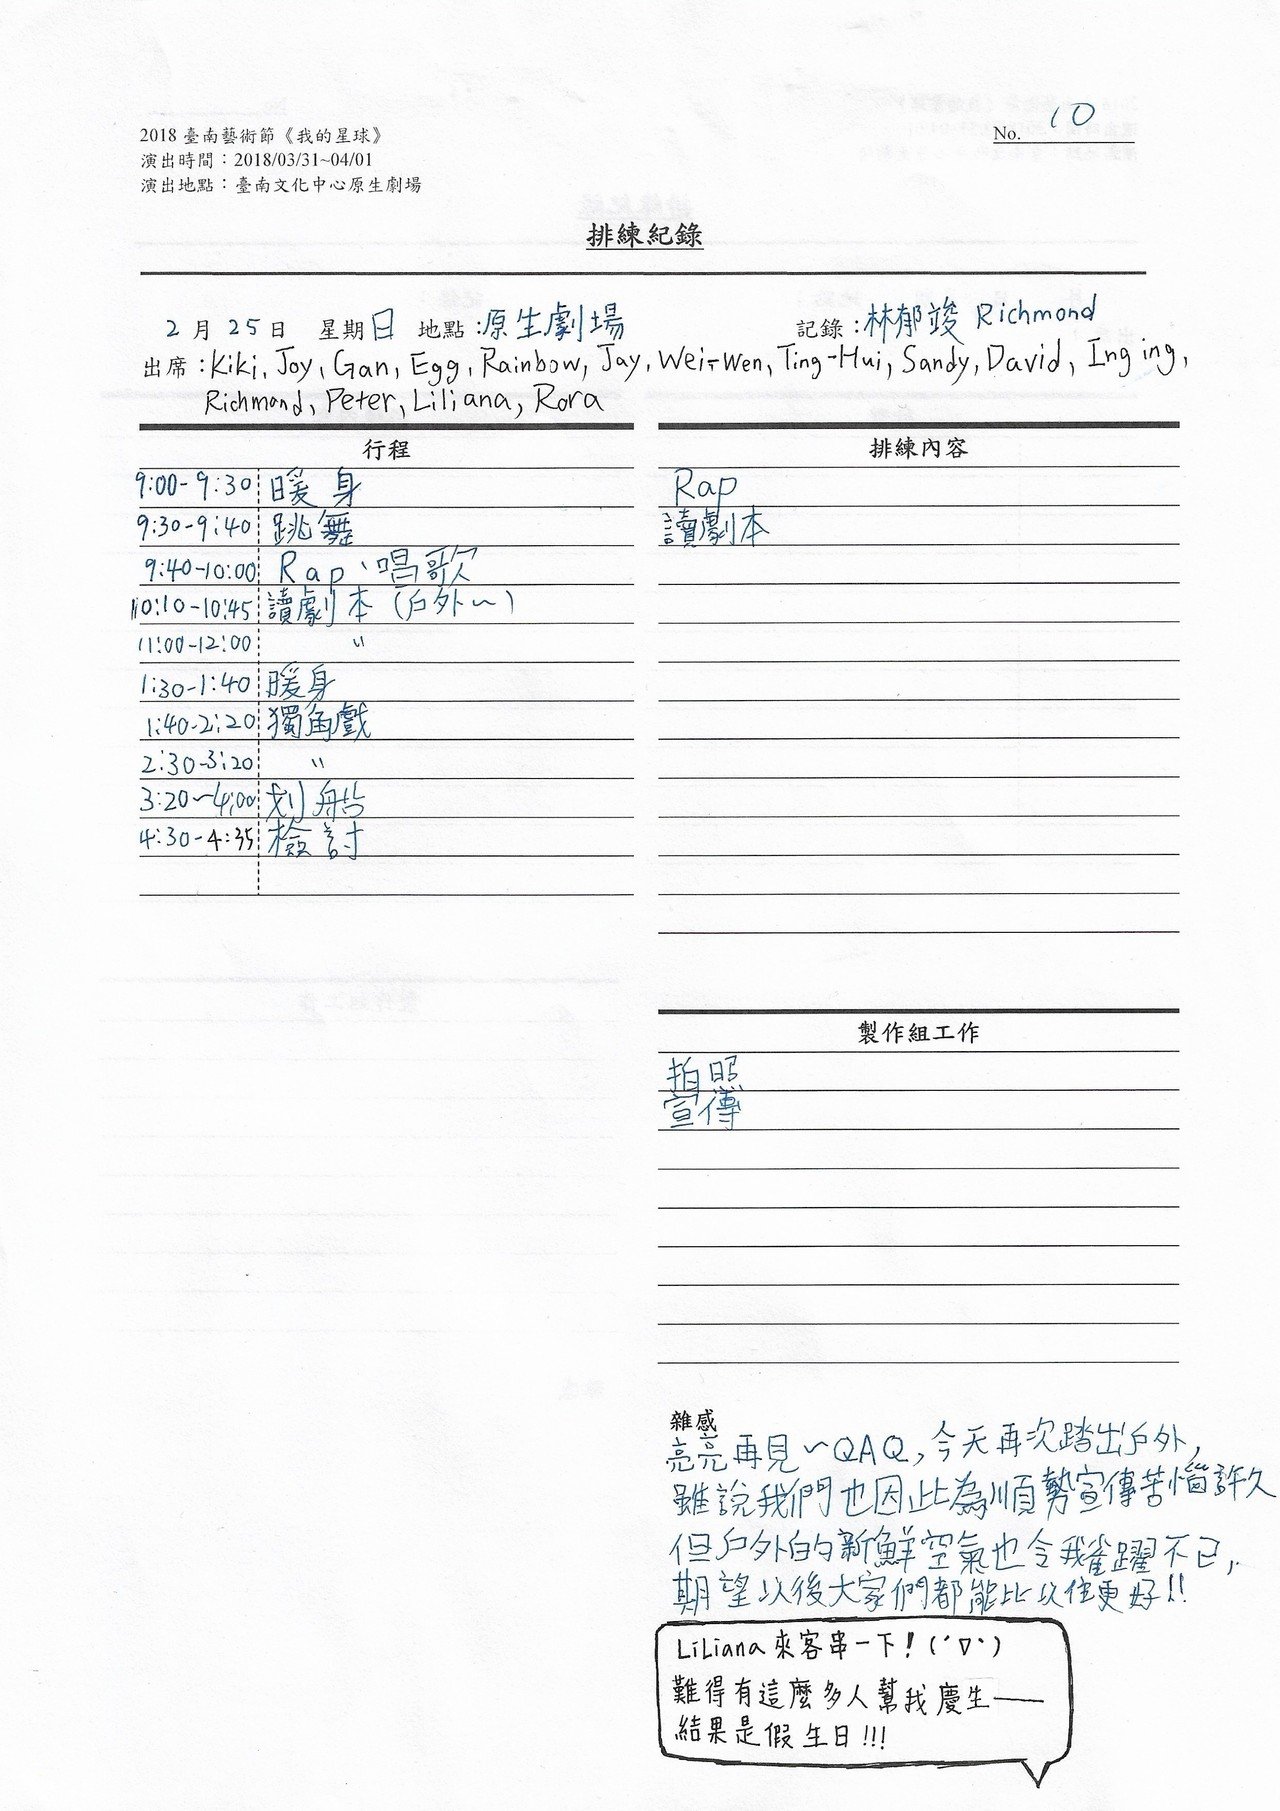 2018 臺南藝術節《我的星球》
演出時間：2018/03/31~04/01
演出地點：臺南文化中心原生劇場
No. 10
排練紀錄
2月25日 星期日 地點：原生劇場 記錄：林郁竣 Richmond
出席：Kiki, Joy, Gan, Egg, Rainbow, Jay, Wei-Wen, Ting-Hui, Sandy, David, Inging,
Richmond, Peter, Liliana, Rora
行程
9:00-9:30 暖身
9:30-9:40 跳舞
9:40-10:00 Rap、唱歌
10:10-10:45 讀劇本（戶外~）
11:00-12:00 〃
1:30-1:40 暖身
1:40-2:20 獨角戲
2:30-3:20 〃
3:20~4:00 划船
4:30-4:35 檢討
排練內容
Rap
讀劇本
製作組工作
拍照
宣傳
雜感
亮亮再見~QAQ,今天再次踏出戶外,
雖說我們也因此為順勢宣傳苦惱許久
但戶外的新鮮空氣也令我雀躍不已,
期望以後大家們都能比以往更好!!
LiLiana來客串一下!(´∇`)
難得有這麼多人幫我慶生——
結果是假生日!!!